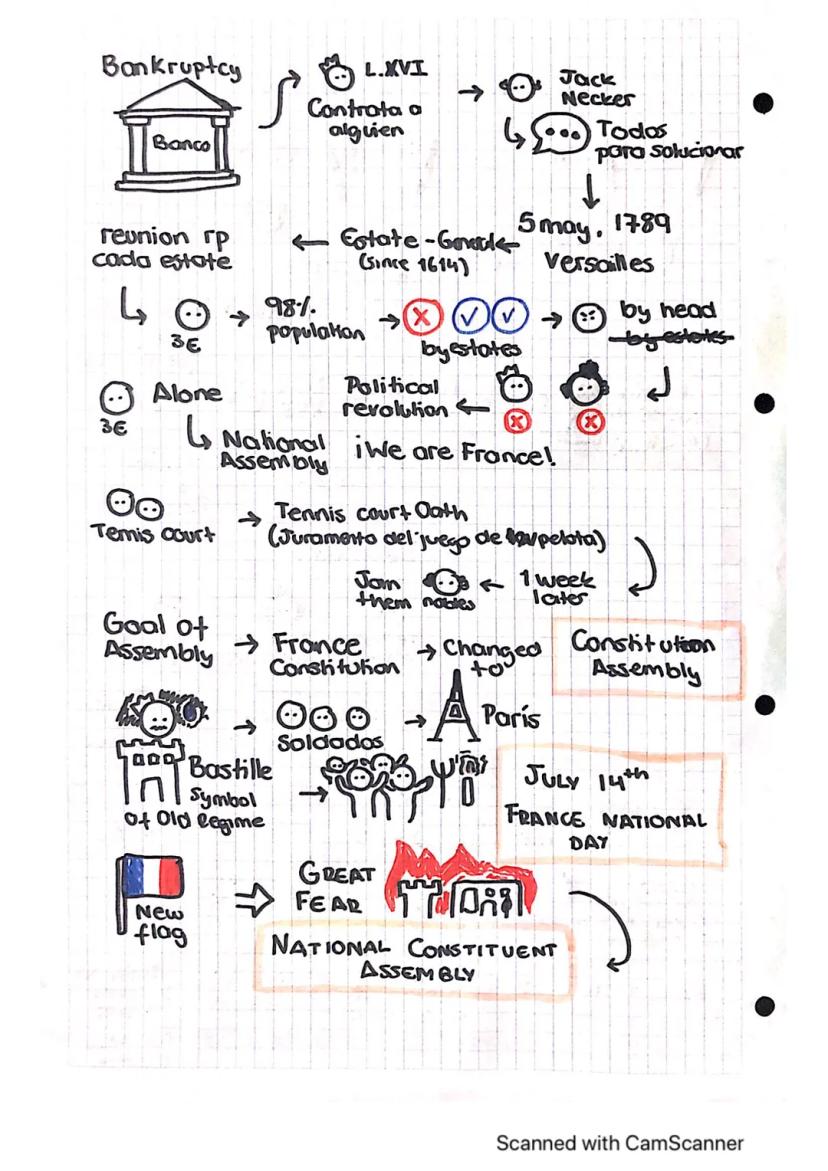 Bankruptcy
Banco
L.XVI
Contrata a
alguien
Jack
Necker
Todos
para solucionar
5 may, 1789
Versailles
Estate-General
(since 1614)
reunion rp
cada estate
3E
98%
population
by estates
by head
by estates
Political
revolution
3E
Alone
National
Assembly
¡We are France!
Tennis court
Tennis court Oath
(Juramento del juego de la pelota)
1 week
later
Join
them nobles
Goal of
Assembly
France
Constitution
Changed
to
Constitution
Assembly
Soldados
París
Bastille
Symbol
of Old Regime
JULY 14th
FRANCE NATIONAL
DAY
New
flag
GREAT
FEAR
NATIONAL CONSTITUENT
ASSEMBLY
Scanned with CamScanner